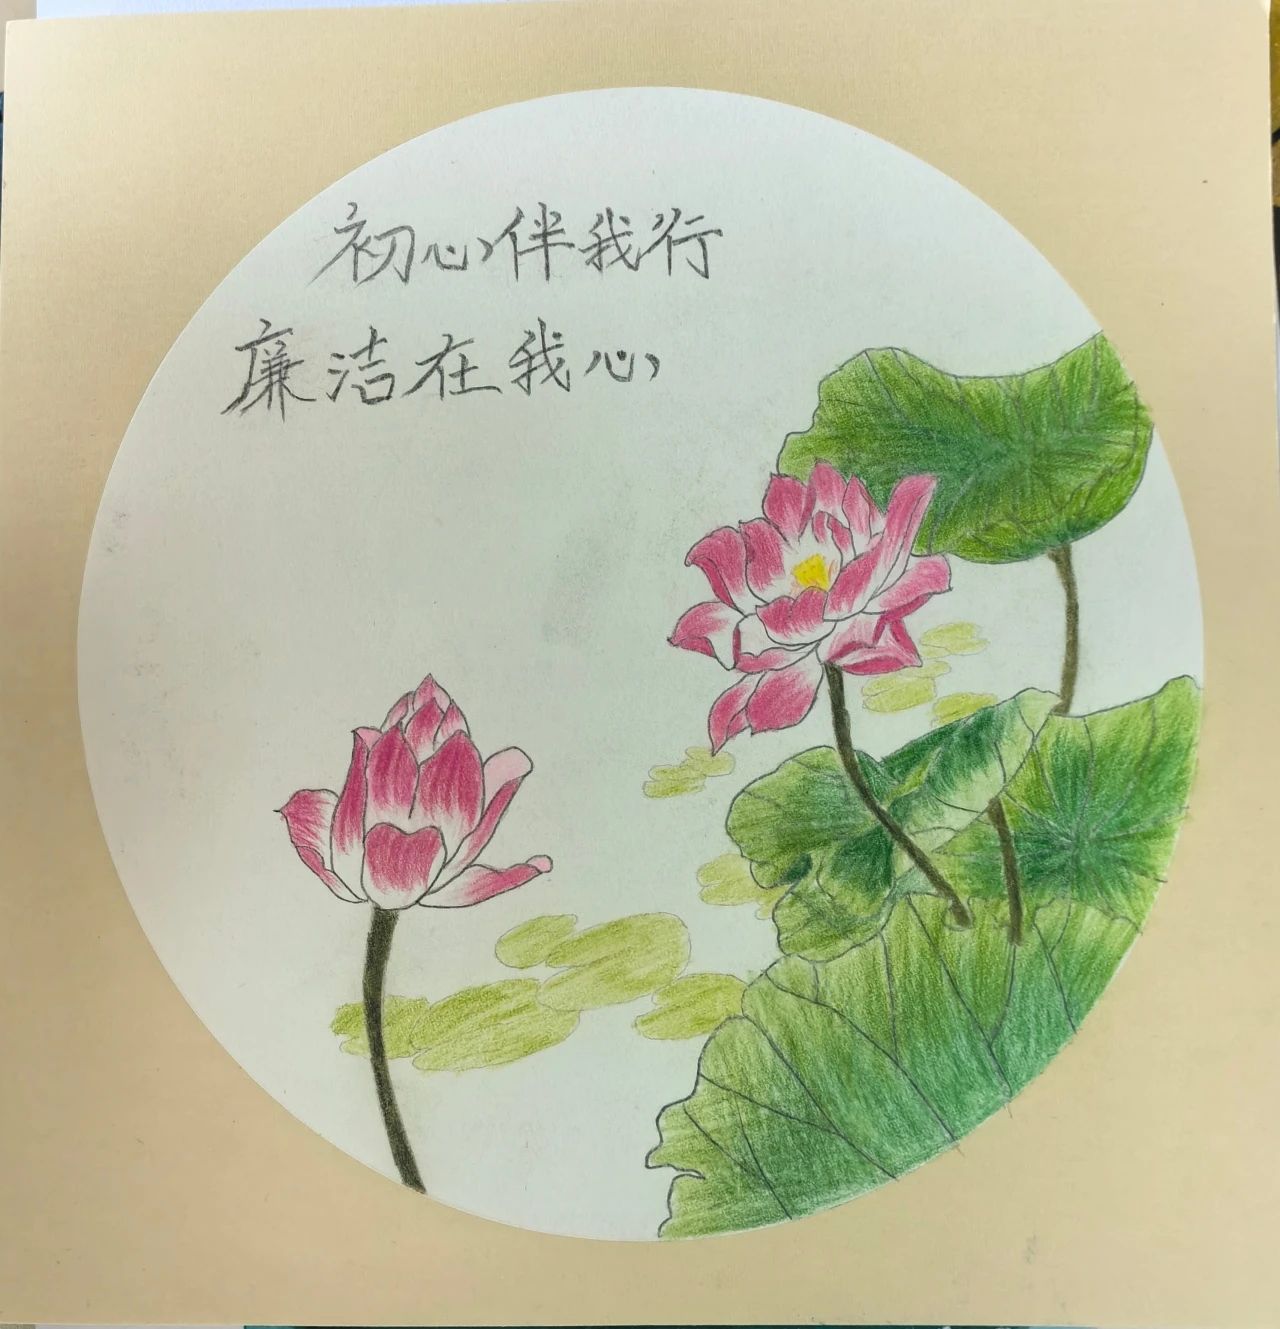 初心伴我行
廉洁在我心